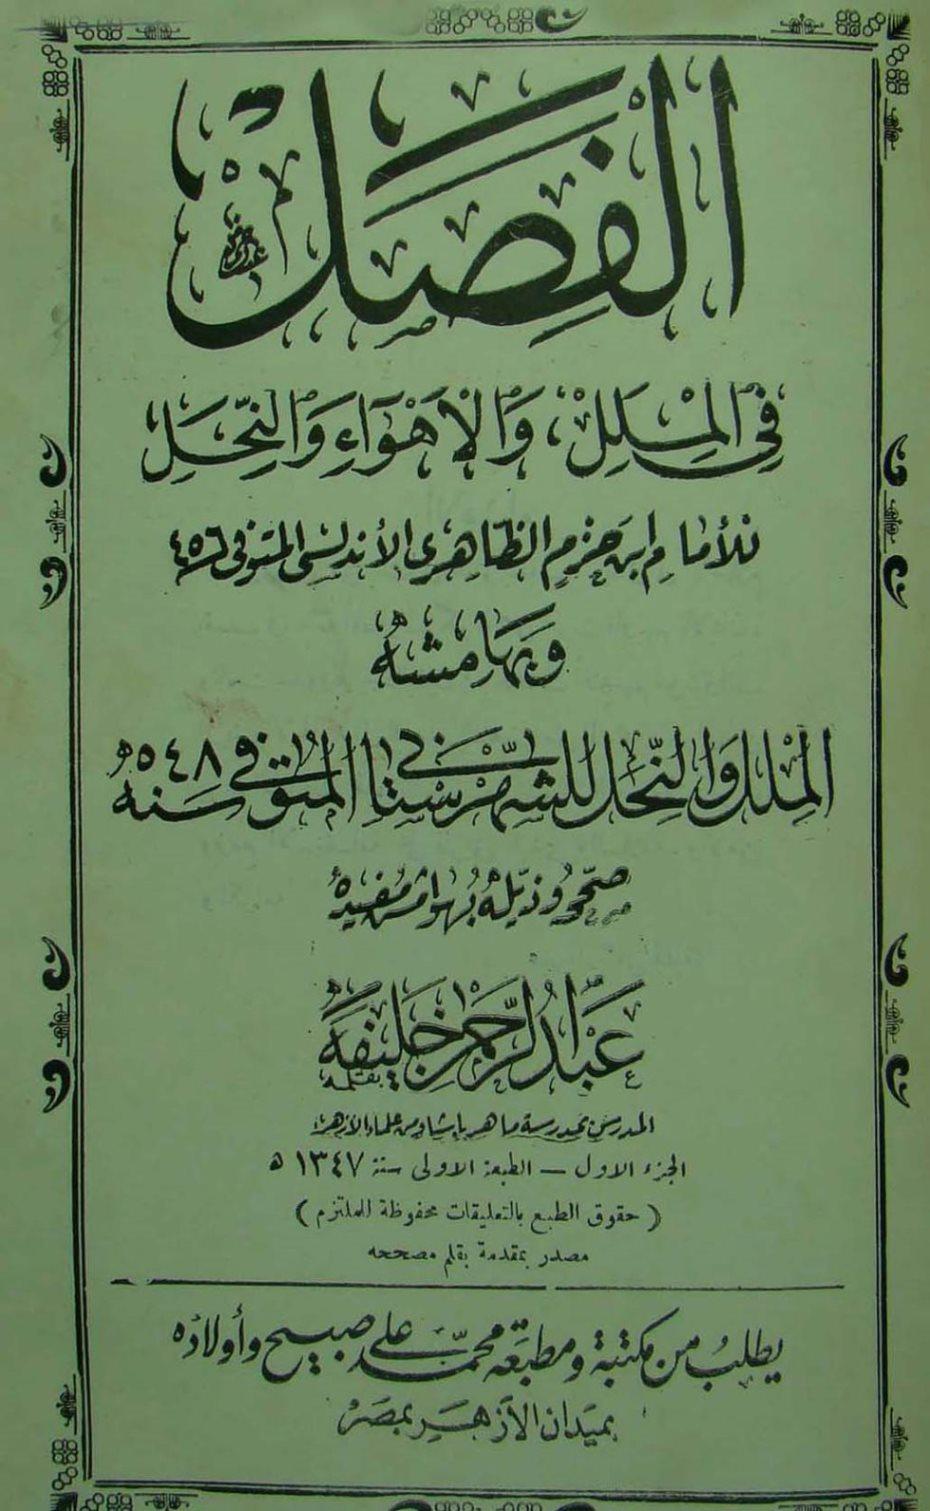 الفِصَلْ
في المِلَلِ، وَالأَهْوَآءِ وَالنِّحَلِ
للأمام ابن حزم الظاهري الأندلسي المتوفى ٤٥٦
وَبهَامشهُ
المِلل وَالنِّحَل للشهْرستَاني المُتوَفى سَنة ٥٤٨ ه
صحّحهُ وذيّلهُ بهوامش مُفيدهْ
عَبْد الرَّحمن خَليفَهْ
المدرس بمدرسة ماهر باشا ومن علماء الأزهر
الجزء الاول — الطبعة الاولى سنة ١٣٤٧ ه
( حقوق الطبع بالتعليقات محفوظة للملتزم )
مصدر بمقدمة بقلم مصححه
يطلبُ من مكتبة ومطبعة محمّد علي صبيح وأولاده
بميَدان الأزهَر بمصَرْ